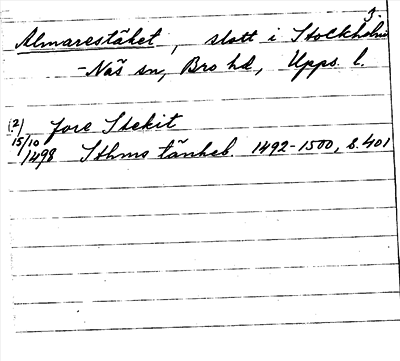 3.
Almarestäket, slott i Stockholms
-Näs sn, Bro hd, Upps. l.
(?) fore Stekit
15/10 1498 Sthms tänkeb. 1492-1500, s. 401